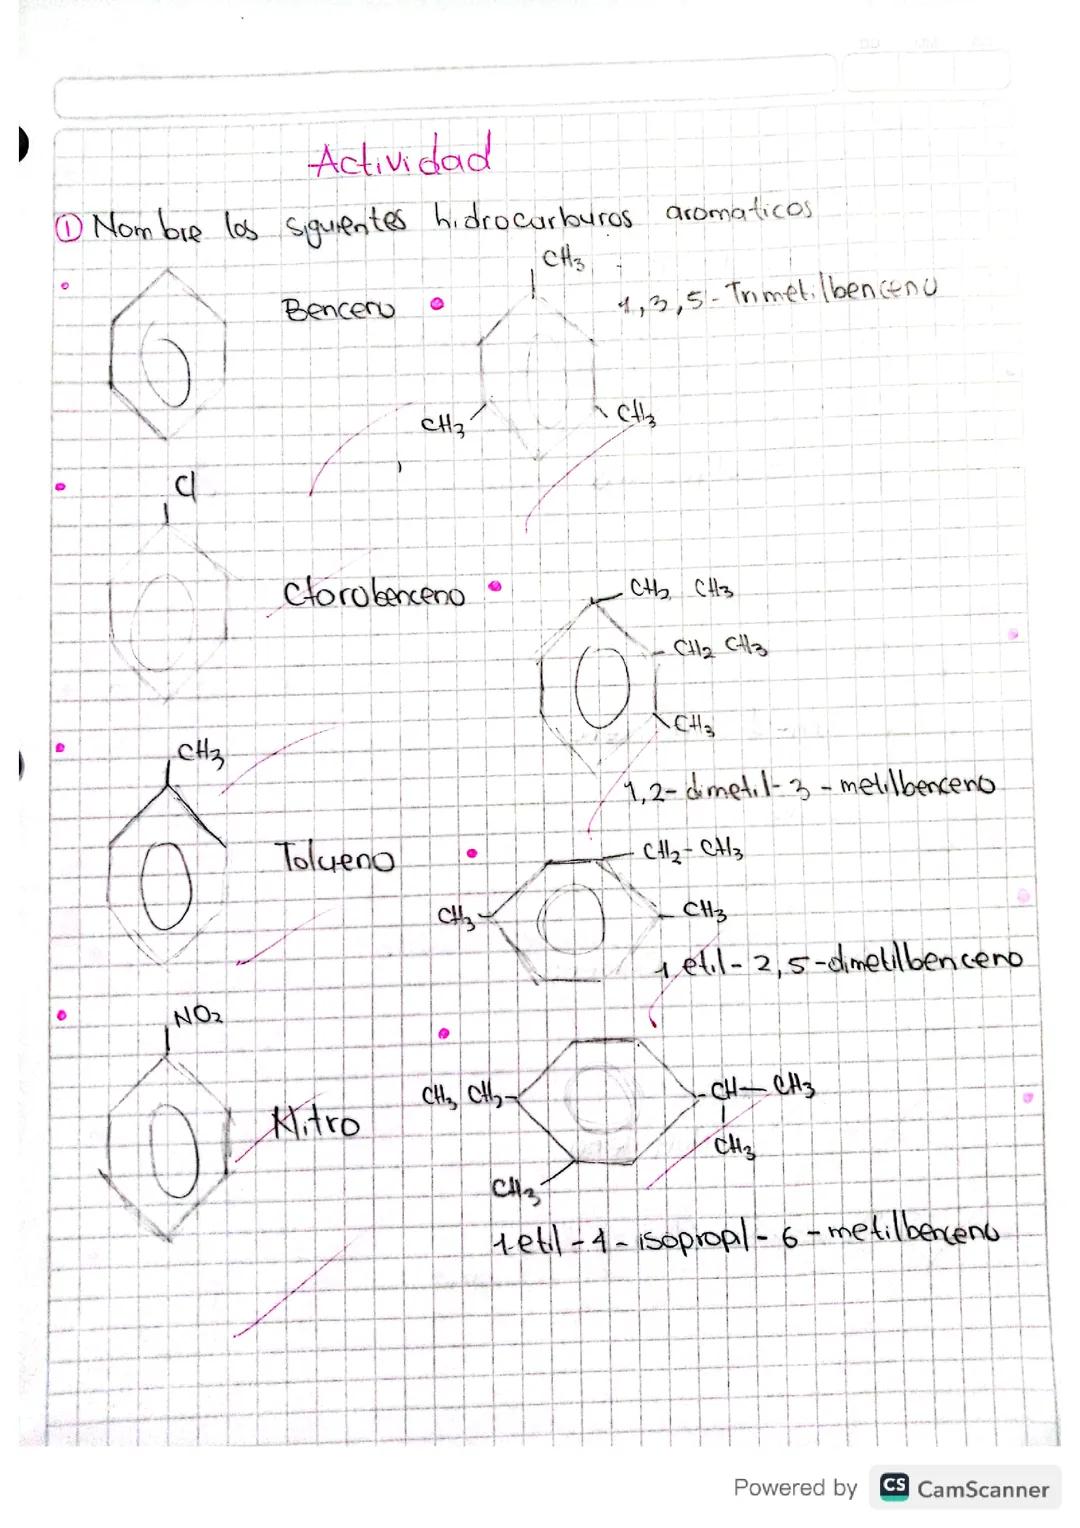 Actividad
① Nombre los siguientes hidrocarburos aromaticos
Benceno
CH3
CH3
CH3
1,3,5-Trimetilbenceno
Cl
Clorobenceno
CH2 CH3
CH2 CH3
CH3
1,2-dimetil-3-metilbenceno
CH3
Tolueno
CH2-CH3
CH3
CH3
1 etil-2,5-dimetilbenceno
NO2
Nitro
CH3 CH2
CH-CH3
CH3
CH3
1-etil-4-isopropil-6-metilbenceno
Powered by CS CamScanner